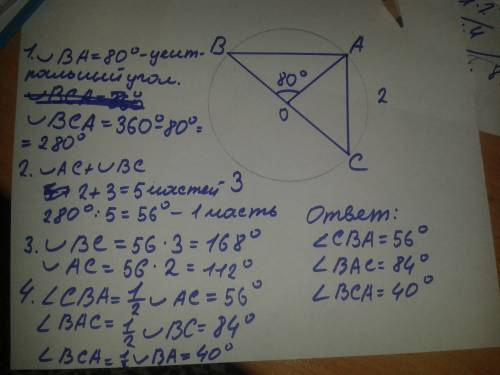 1. ◡BA = 80° - цент-
ральный угол.
◡BCA = 360° - 80° =
= 280°
2. ◡AC + ◡BC
2 + 3 = 5 частей
280° : 5 = 56° - 1 часть
3. ◡BC = 56 · 3 = 168°
◡AC = 56 · 2 = 112°
4. ∠CBA = 1/2 ◡AC = 56°
∠BAC = 1/2 ◡BC = 84°
∠BCA = 1/2 ◡BA = 40°
B
A
80°
O
2
C
3
Ответ:
∠CBA = 56°
∠BAC = 84°
∠BCA = 40°